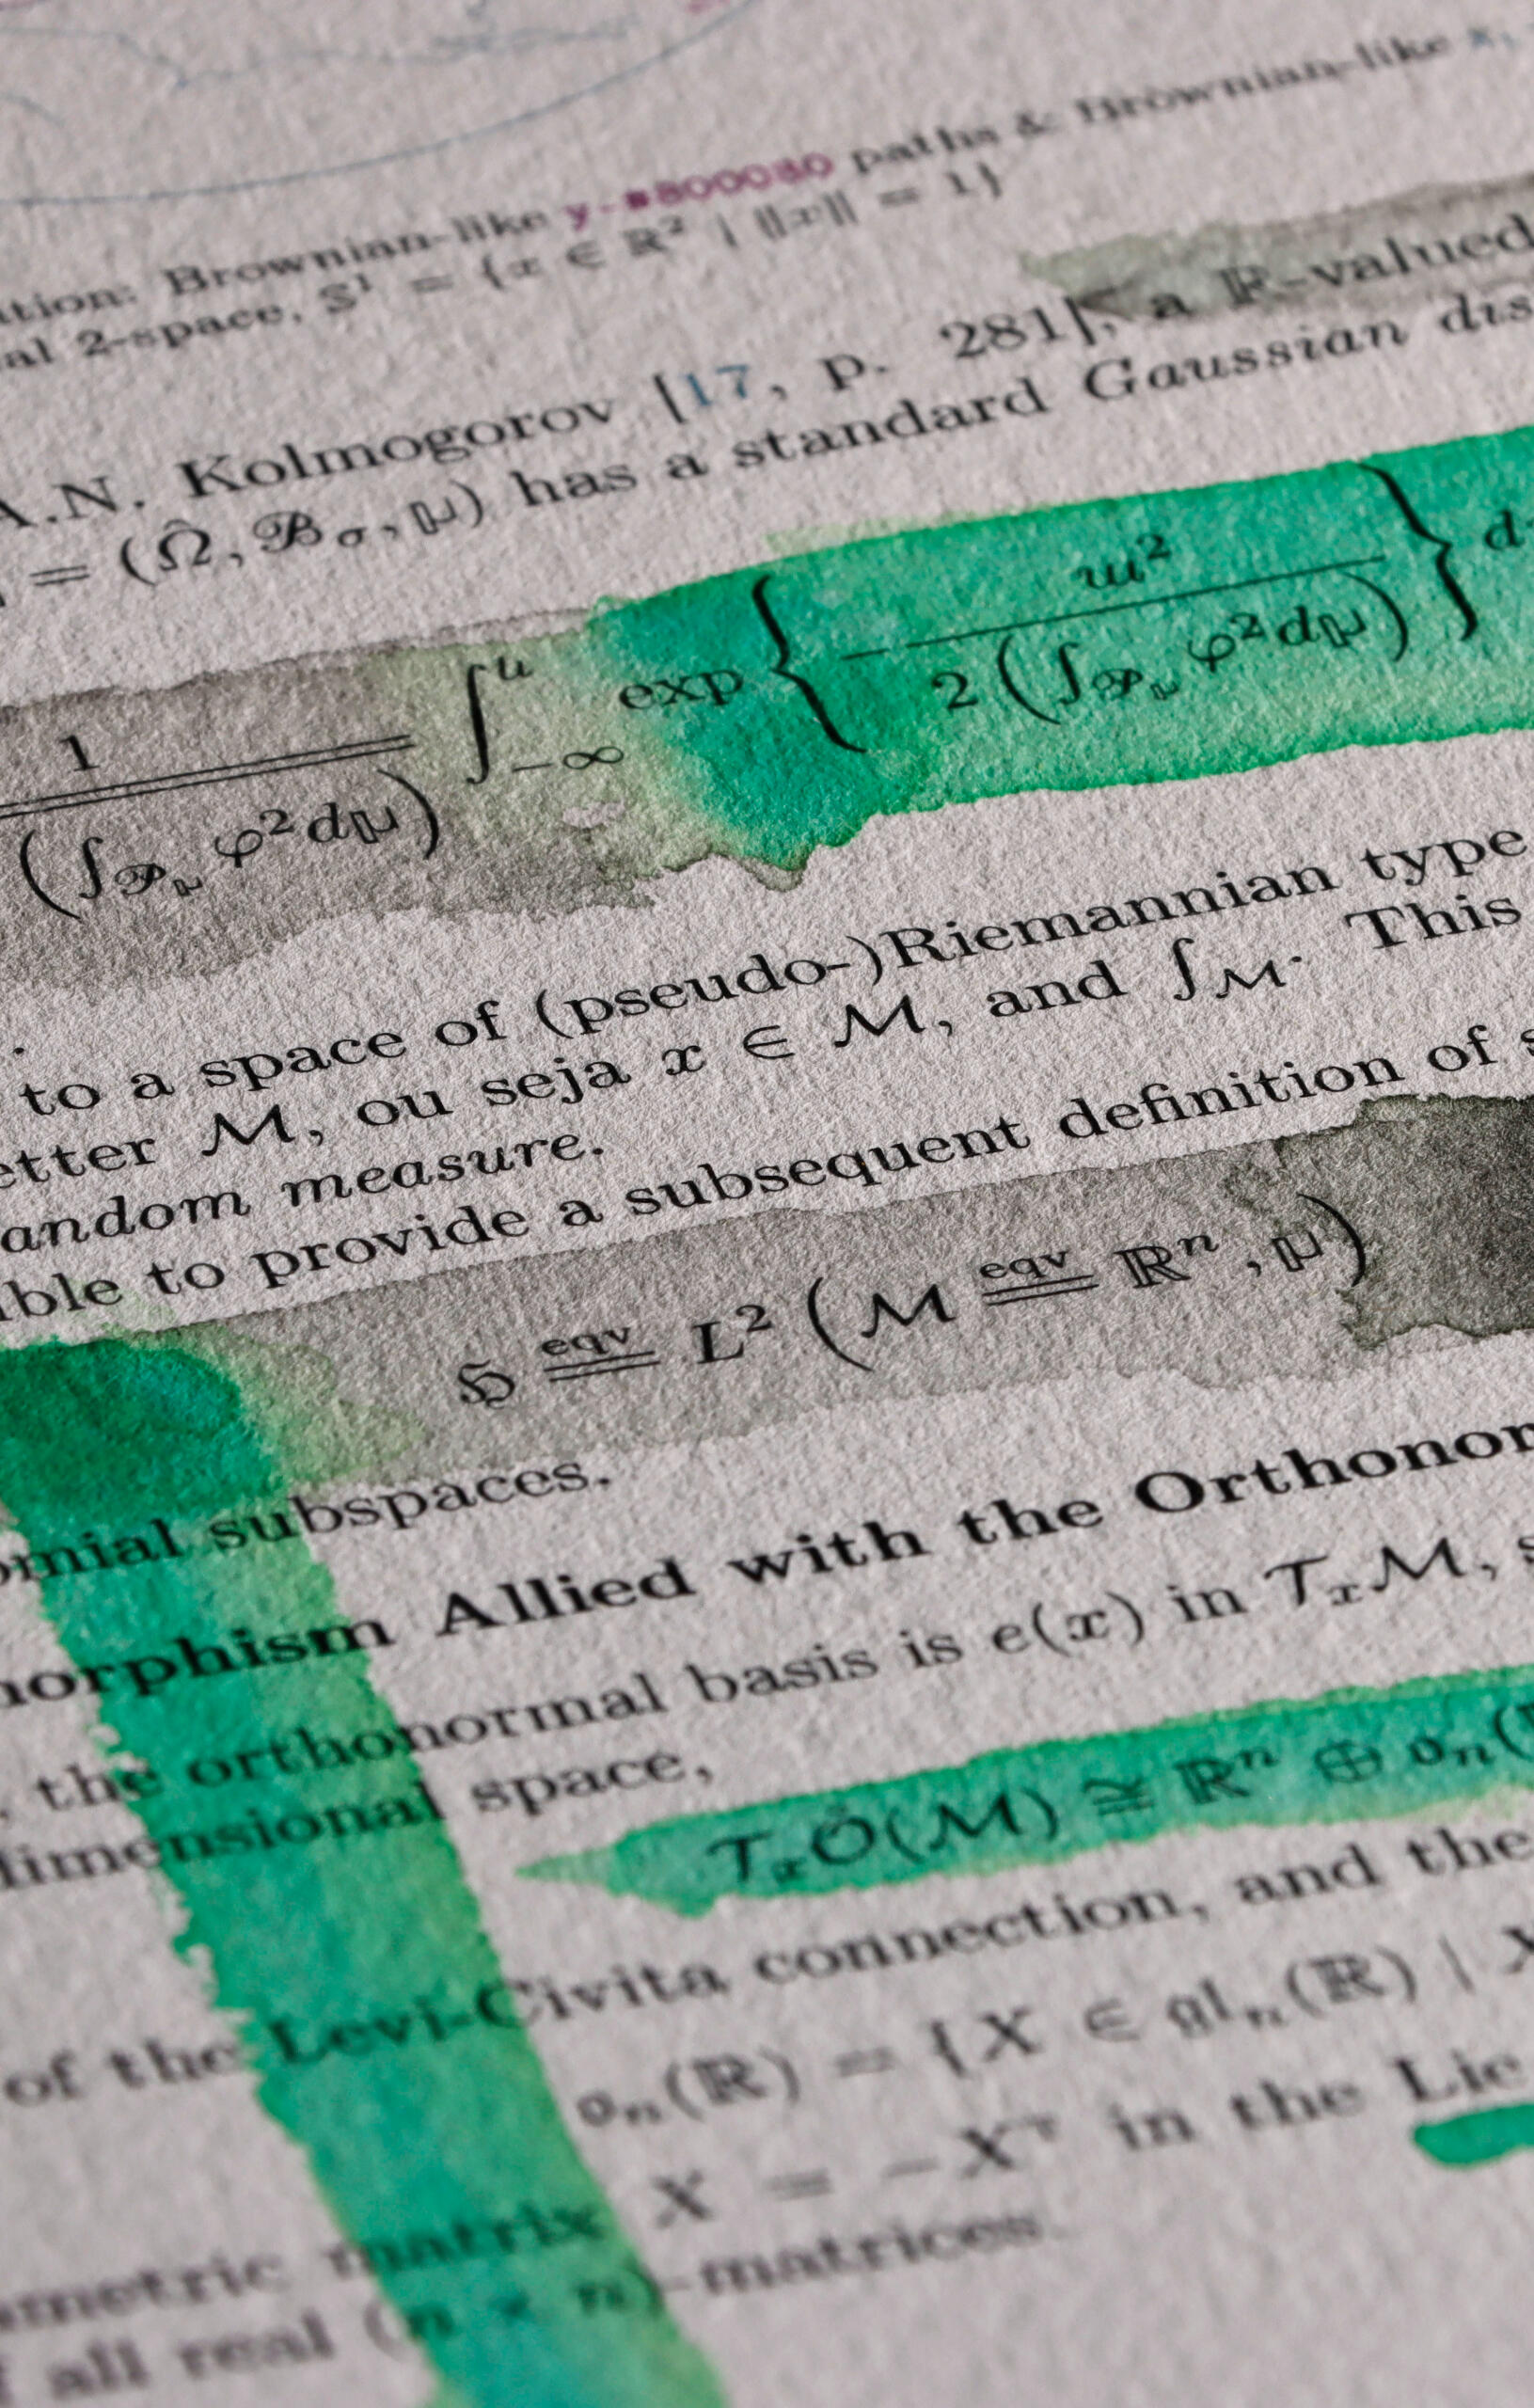 ition: Brownian-like y-#800080 paths & Brownian-like x,
al 2-space, 𝕊¹ = {x ∈ ℝ² | ‖x‖ = 1}
A.N. Kolmogorov [17, p. 281], a ℝ-valued
= (Ω̂, ℬσ, μ) has a standard Gaussian dis
1 / (∫𝒫μ φ²dμ) ∫_{-∞}^{u} exp { − ɯ² / 2 (∫𝒫μ φ²dμ) } d
to a space of (pseudo-)Riemannian type
etter ℳ, ou seja x ∈ ℳ, and ∫ℳ. This
andom measure.
ble to provide a subsequent definition of s
ℌ eqv== L² (ℳ eqv== ℝⁿ, μ)
omial subspaces.
norphism Allied with the Orthonor
, the orthonormal basis is e(x) in 𝒯ₓℳ, s
dimensional space,
𝒯ₓO(ℳ) ≅ ℝⁿ ⊕ 𝔬ₙ(
of the Levi-Civita connection, and the
𝔬ₙ(ℝ) = {X ∈ 𝔤𝔩ₙ(ℝ) | X
mmetric matrix X = −Xᵀ in the Lie
f all real (n × n)-matrices.